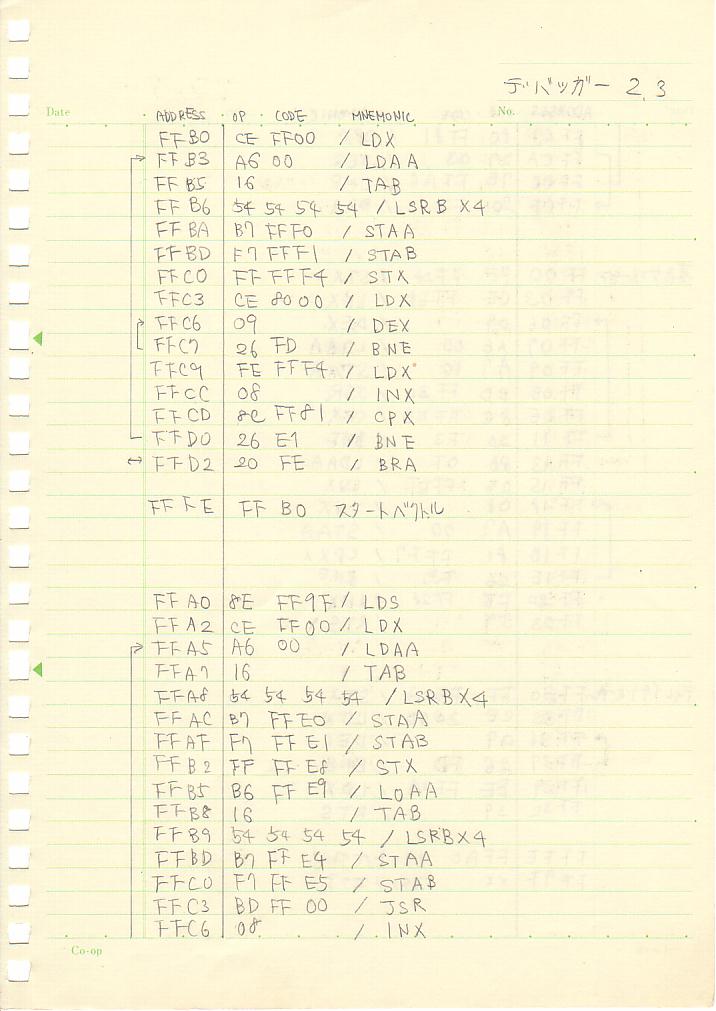 デバッガー 2,3
Date No.
ADDRESS OP CODE MNEMONIC
FFB0 CE FF00 / LDX
FFB3 A6 00 / LDAA
FFB5 16 / TAB
FFB6 54 54 54 54 / LSRB X4
FFBA B7 FFF0 / STAA
FFBD F7 FFF1 / STAB
FFC0 FF FFF4 / STX
FFC3 CE 8000 / LDX
FFC6 09 / DEX
FFC7 26 FD / BNE
FFC9 FE FFF4 / LDX
FFCC 08 / INX
FFCD 8C FF81 / CPX
FFD0 26 E1 / BNE
FFD2 20 FE / BRA
FFFE FF B0 スタートベクトル
FFA0 8E FF9F / LDS
FFA2 CE FF00 / LDX
FFA5 A6 00 / LDAA
FFA7 16 / TAB
FFA8 54 54 54 54 / LSRB X4
FFAC B7 FFE0 / STAA
FFAF F7 FFE1 / STAB
FFB2 FF FFE8 / STX
FFB5 B6 FFE9 / LDAA
FFB8 16 / TAB
FFB9 54 54 54 54 / LSRB X4
FFBD B7 FF E4 / STAA
FFC0 F7 FF E5 / STAB
FFC3 BD FF 00 / JSR
FFC6 08 / INX
Co-op